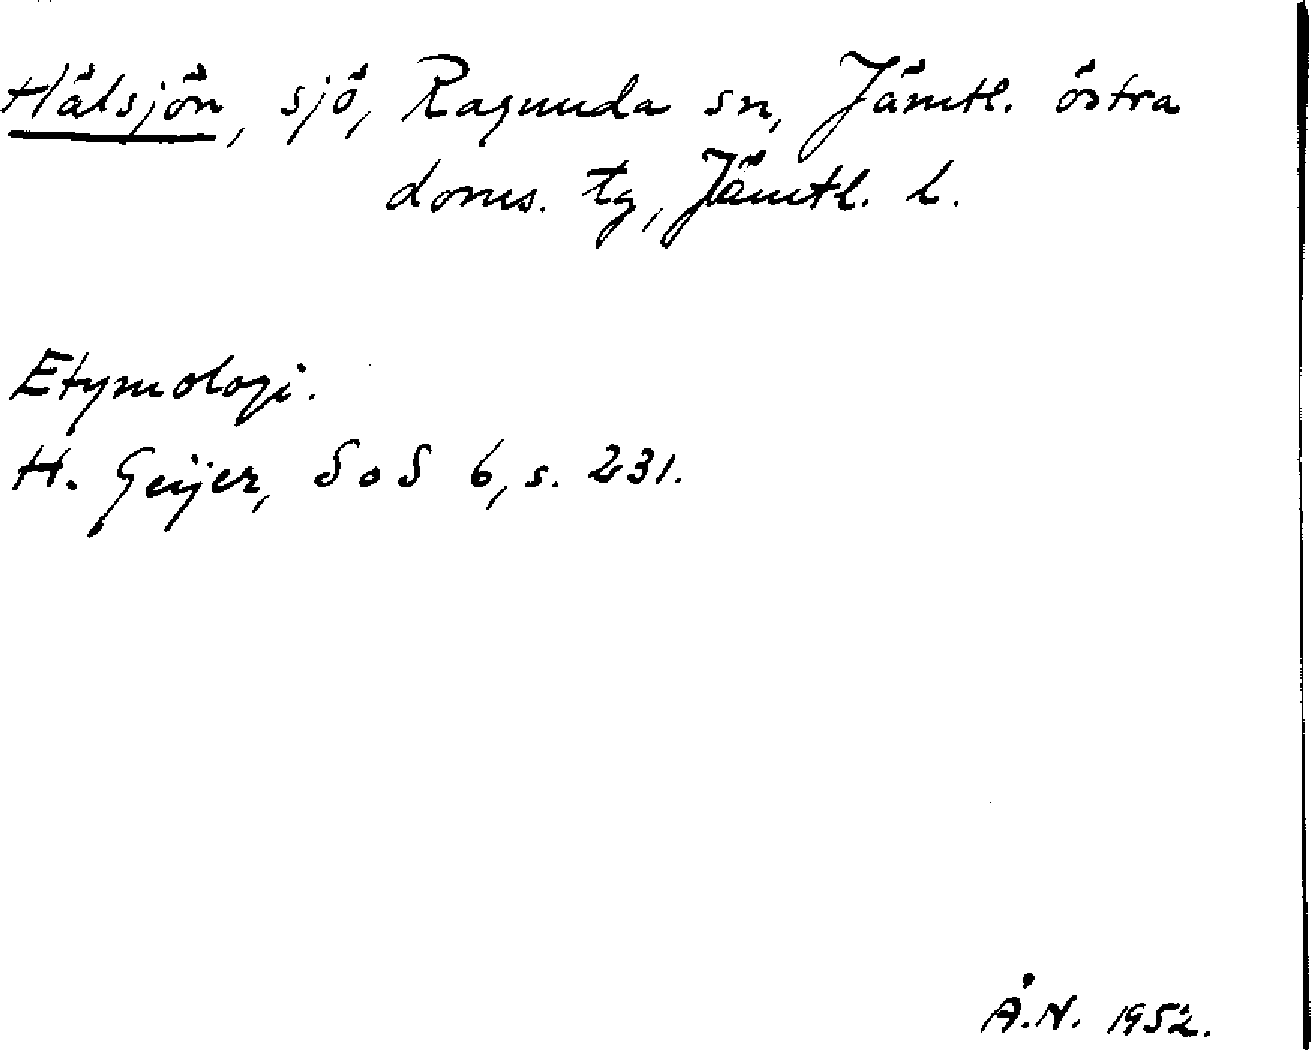 Hälsjön, sjö, Ragunda sn, Jämtl. östra
doms. tg, Jämtl. l.
Etymologi.
H. Geijer, SoS 6, s. 231.
Å.N. 1952.